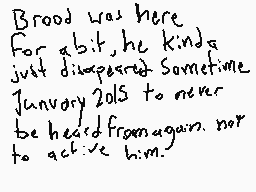 Brood was here
for a bit, he kinda
just disapeared sometime
January 2015 to never
be heard from again. not
to active him.